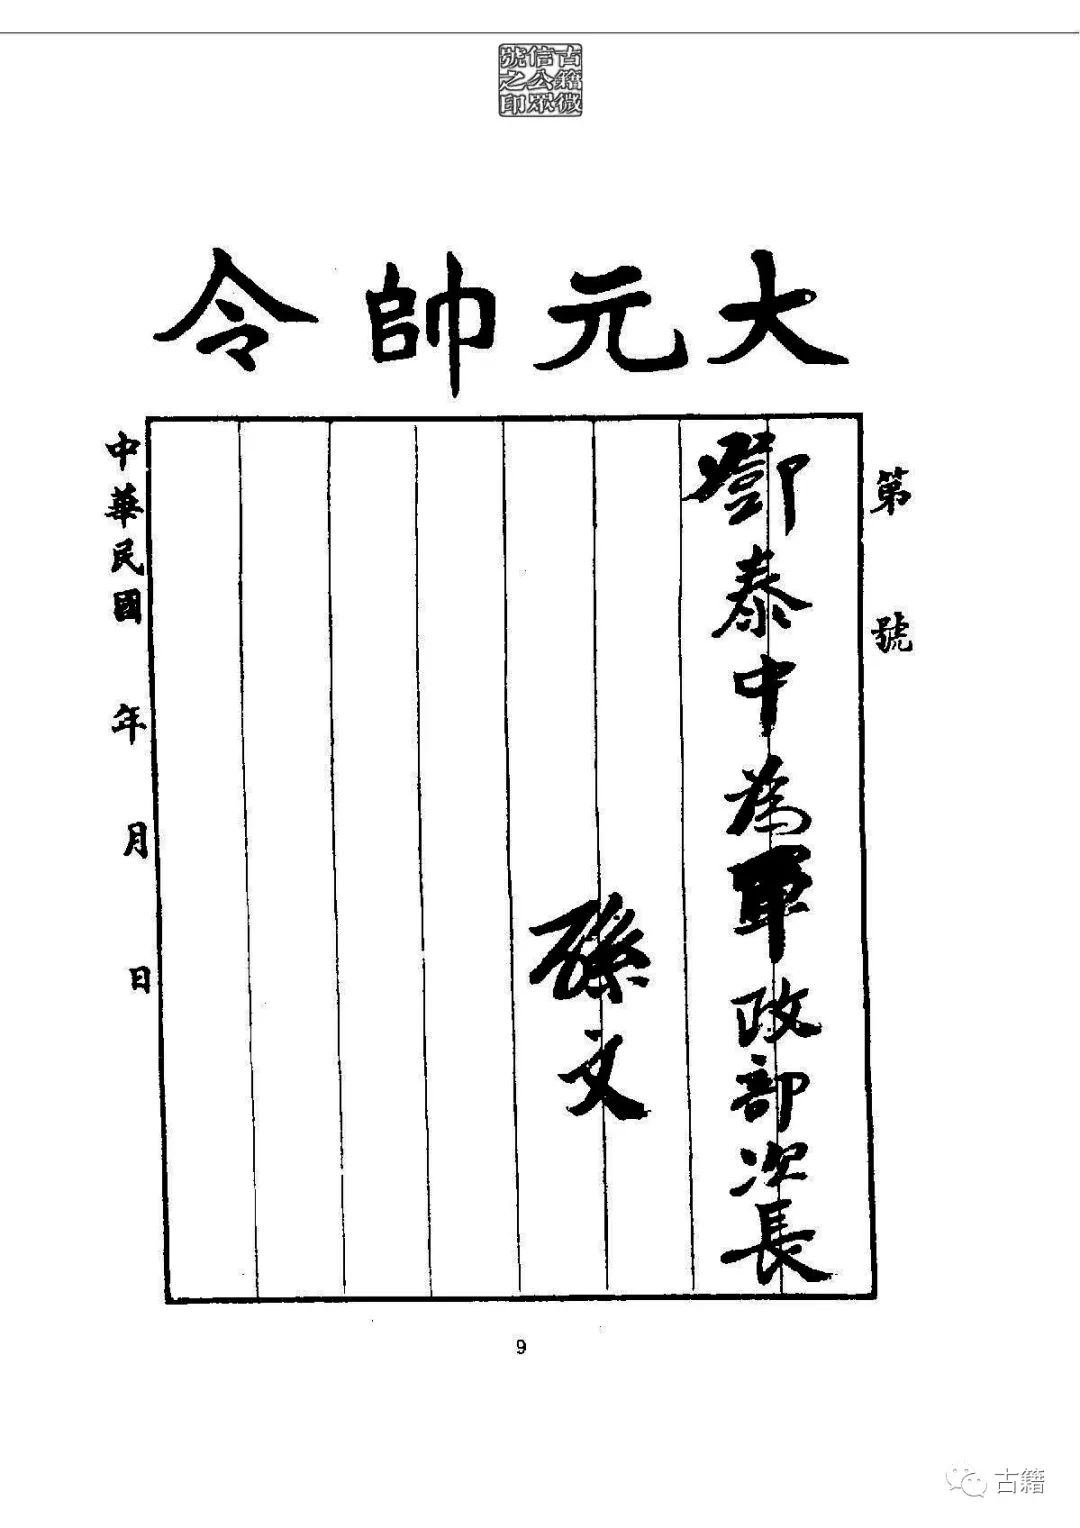 古籍微
信公眾
號之印
大元帥令
第 號
鄧泰中為軍政部次長
孫文
中華民國 年 月 日
9
古籍